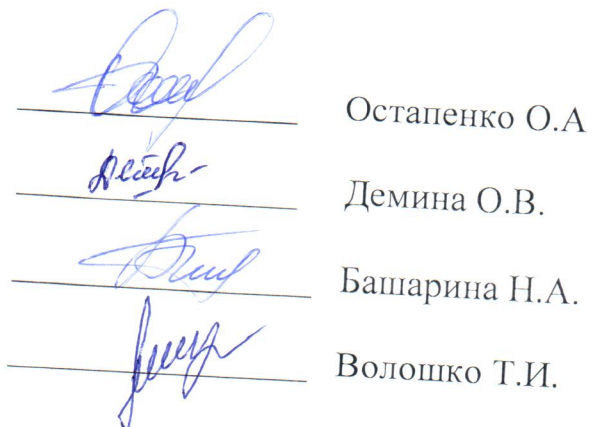 Остапенко О.А
Демина О.В.
Башарина Н.А.
Волошко Т.И.